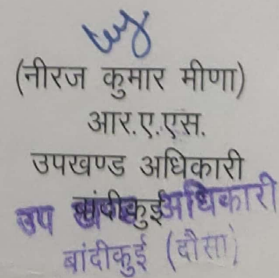 (नीरज कुमार मीणा)
आर.ए.एस.
उपखण्ड अधिकारी
बांदीकुई
उप खण्ड अधिकारी
बांदीकुई (दौसा)